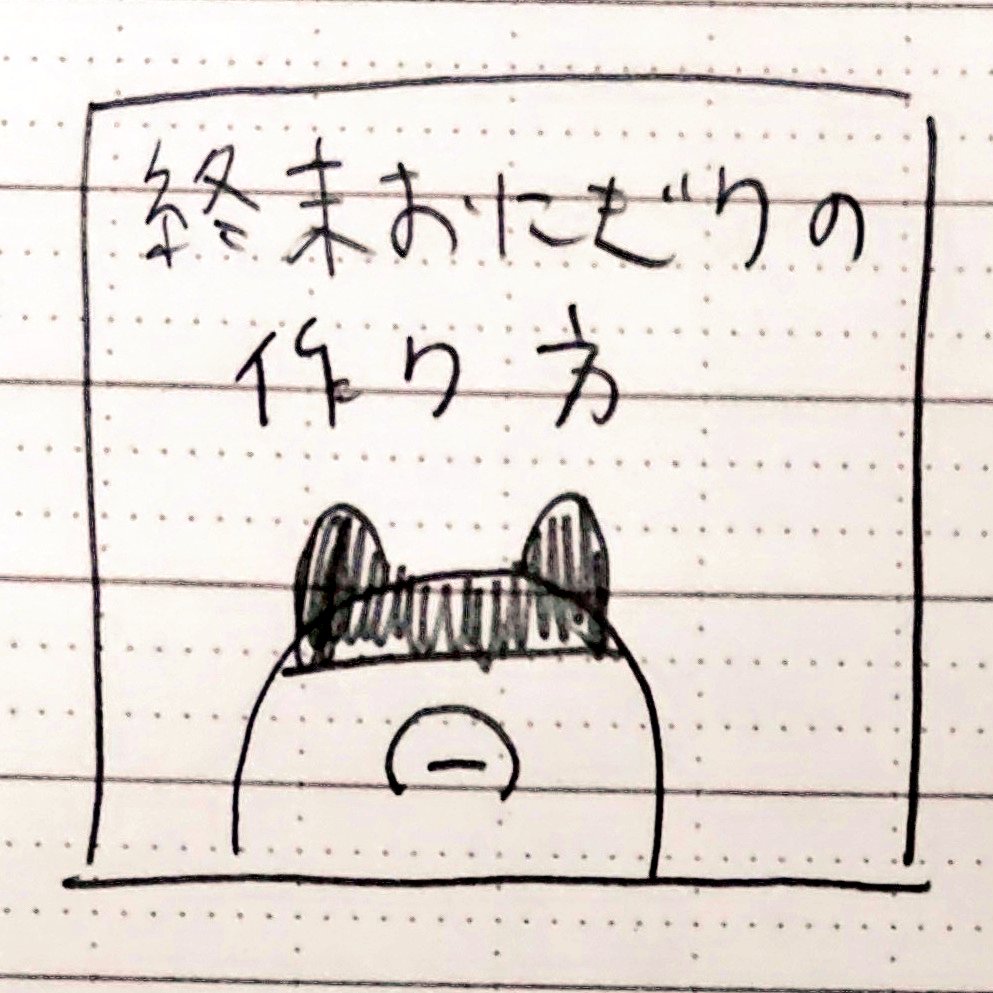 終末おにぎりの
作り方